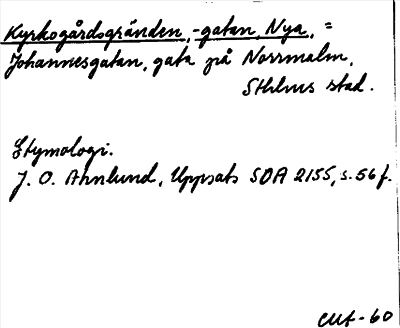 Kyrkogårdsgränden, -gatan, Nya, =
Johannesgatan, gata på Norrmalm,
Sthlms stad.
Etymologi.
J. O. Ahnlund, Uppsats SOA 2155, s. 56 f.
-60